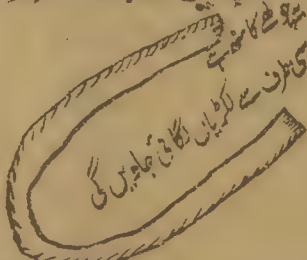 چولھے کا منہ ہے
اسی طرف سے لکڑیاں لگائی جاویں گی